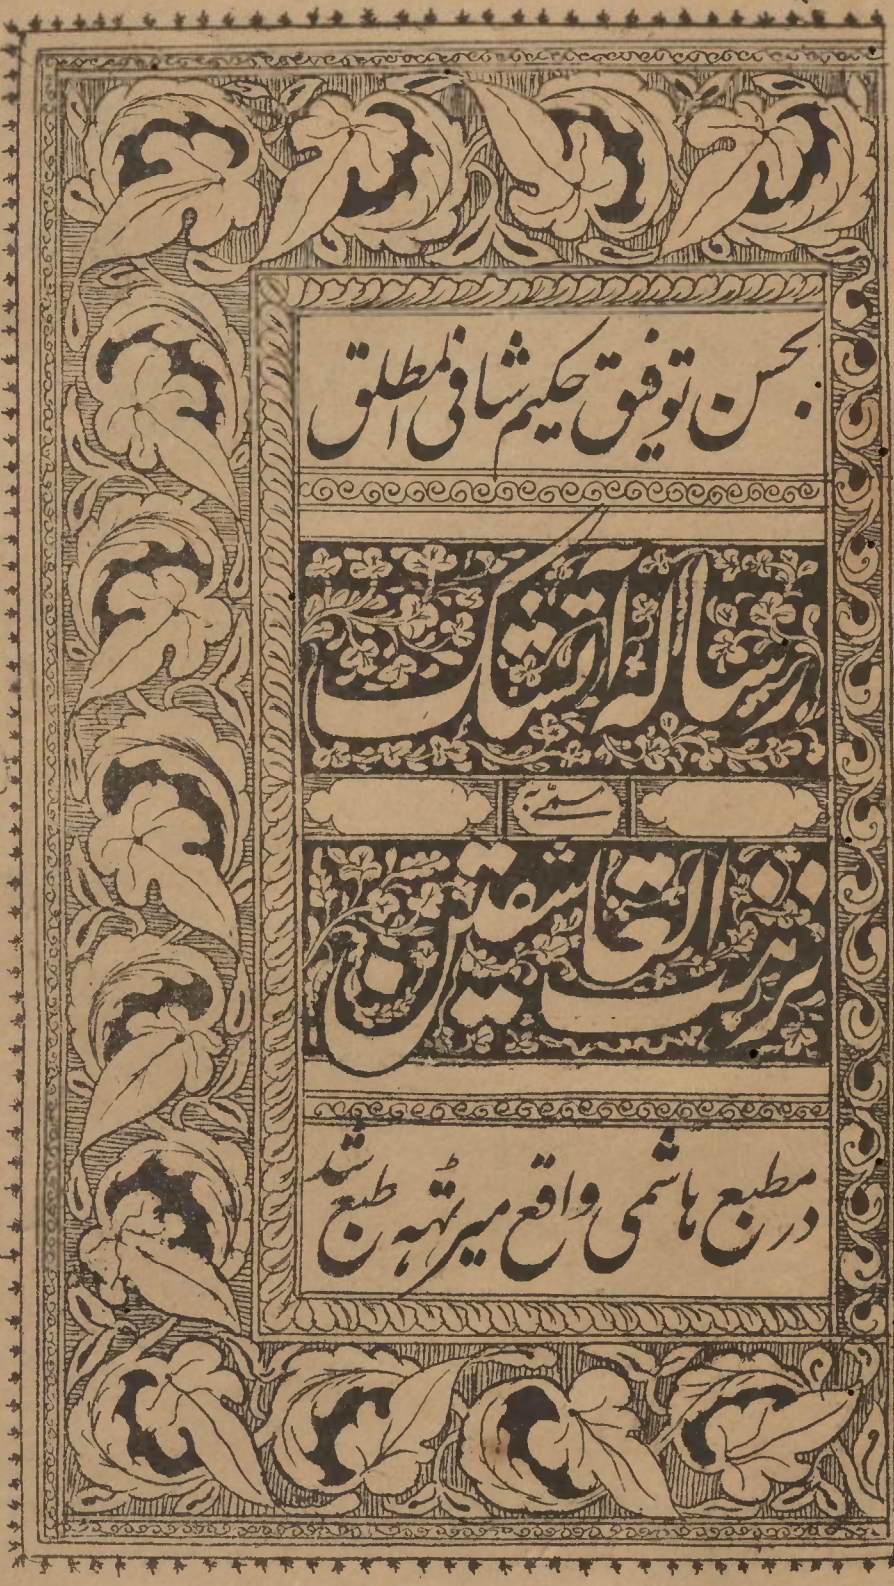 بحسن توفیق حکیم شافی المطلق
رسالہ آتشک
مسمّٰے بہ
زینت العاشقین
در مطبع ہاشمی واقع میرٹہہ طبع شد